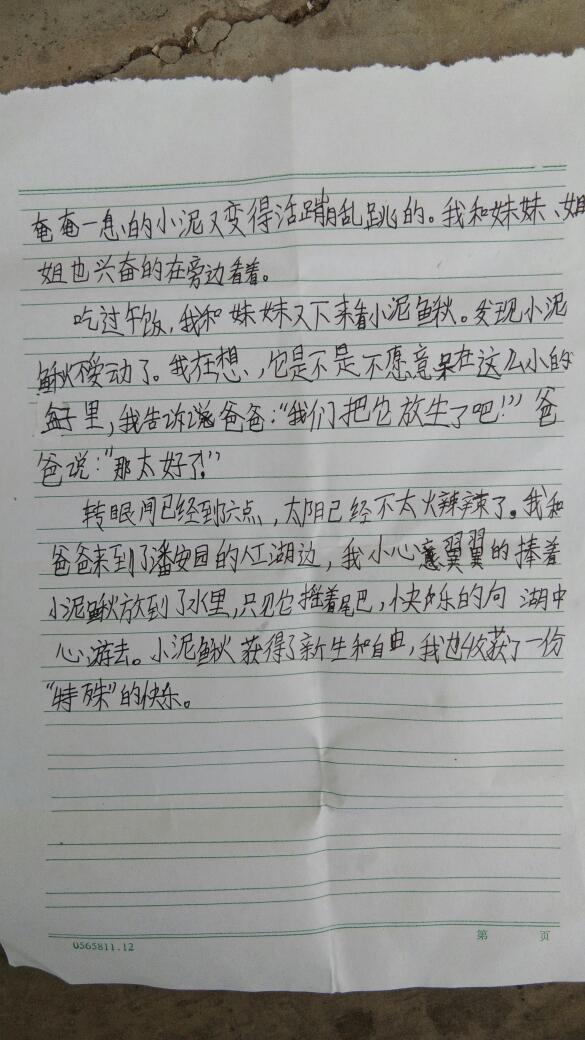 奄奄一息的小泥又变得活蹦乱跳的。我和妹妹、姐
姐也兴奋的在旁边看着。
吃过午饭,我和妹妹又下来看小泥鳅。发现小泥
鳅不爱动了。我在想,它是不是不愿意呆在这么小的
盆子里,我告诉爸爸:“我们把它放生了吧!”爸
爸说:“那太好了!”
转眼间已经到六点,太阳已经不太火辣辣了。我和
爸爸来到了潘安园的人工湖边,我小心翼翼的捧着
小泥鳅放到了水里,只见它摇着尾巴,快乐的向湖中
心游去。小泥鳅获得了新生和自由,我也收获了一份
“特殊”的快乐。
0565811.12
第 页